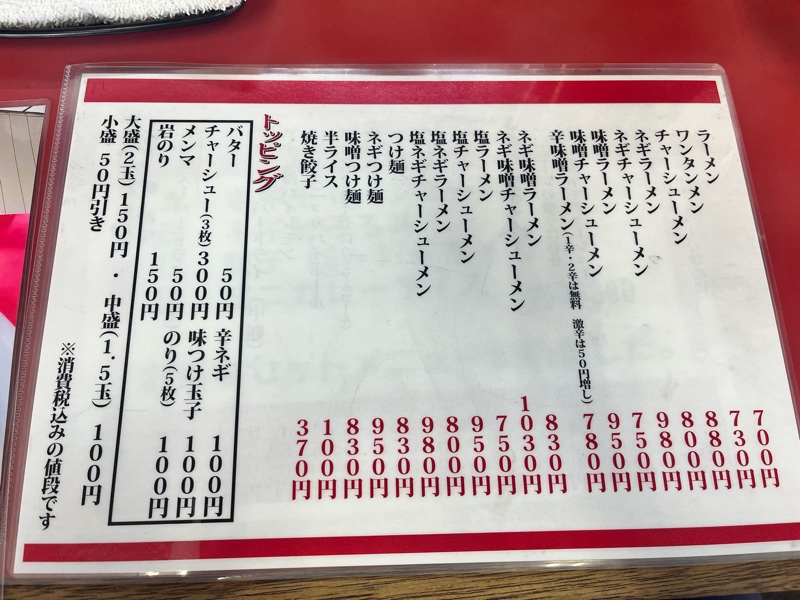 ラーメン 700円
ワンタンメン 730円
チャーシューメン 880円
ネギラーメン 800円
ネギチャーシューメン 980円
味噌ラーメン 750円
味噌チャーシューメン 950円
辛味噌ラーメン(1辛・2辛は無料 激辛は50円増し) 780円
ネギ味噌ラーメン 830円
ネギ味噌チャーシューメン 1030円
塩ラーメン 750円
塩チャーシューメン 950円
塩ネギラーメン 800円
塩ネギチャーシューメン 980円
つけ麺 830円
ネギつけ麺 950円
味噌つけ麺 830円
半ライス 100円
焼き餃子 370円
トッピング
バター 50円 辛ネギ 100円
チャーシュー(3枚) 300円 味つけ玉子 100円
メンマ 50円 のり(5枚) 100円
岩のり 150円
大盛(2玉) 150円・中盛(1.5玉) 100円
小盛 50円引き
※消費税込みの値段です